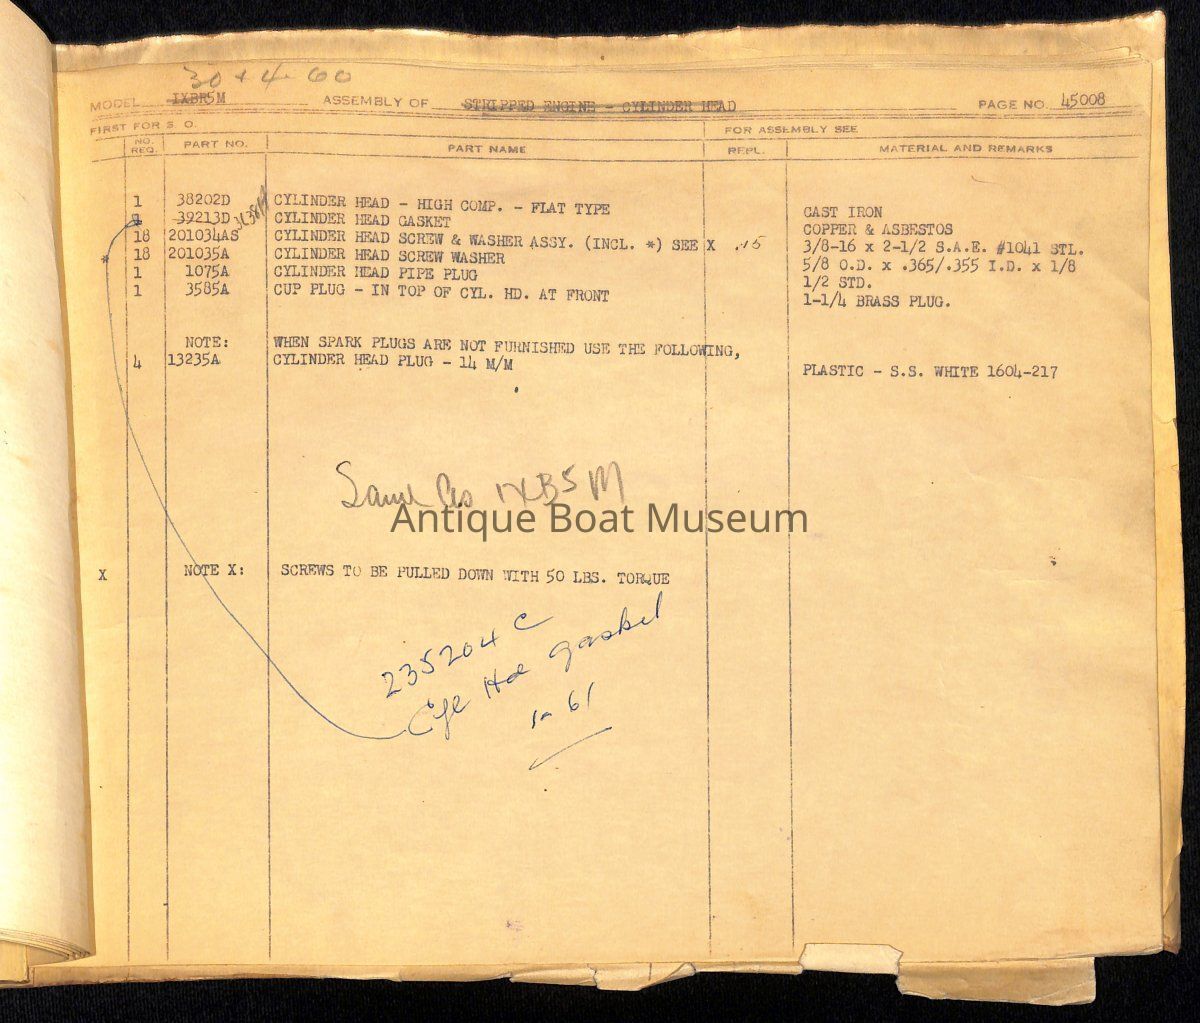 30 + 4-60
MODEL IXBR5M ASSEMBLY OF STRIPPED ENGINE - CYLINDER HEAD PAGE NO. 45008
FIRST FOR S. O. FOR ASSEMBLY SEE
NO. REQ. PART NO. PART NAME REPL. MATERIAL AND REMARKS
1 38202D CYLINDER HEAD - HIGH COMP. - FLAT TYPE CAST IRON
1 39213D CYLINDER HEAD GASKET COPPER & ASBESTOS
18 201034AS CYLINDER HEAD SCREW & WASHER ASSY. (INCL. *) SEE X .15 3/8-16 x 2-1/2 S.A.E. #1041 STL.
* 18 201035A CYLINDER HEAD SCREW WASHER 5/8 O.D. x .365/.355 I.D. x 1/8
1 1075A CYLINDER HEAD PIPE PLUG 1/2 STD.
1 3585A CUP PLUG - IN TOP OF CYL. HD. AT FRONT 1-1/4 BRASS PLUG.
NOTE: WHEN SPARK PLUGS ARE NOT FURNISHED USE THE FOLLOWING,
4 13235A CYLINDER HEAD PLUG - 14 M/M PLASTIC - S.S. WHITE 1604-217
Same As IXB5M
Antique Boat Museum
X NOTE X: SCREWS TO BE PULLED DOWN WITH 50 LBS. TORQUE
235204 C
Cyl Hd gasket
1-61